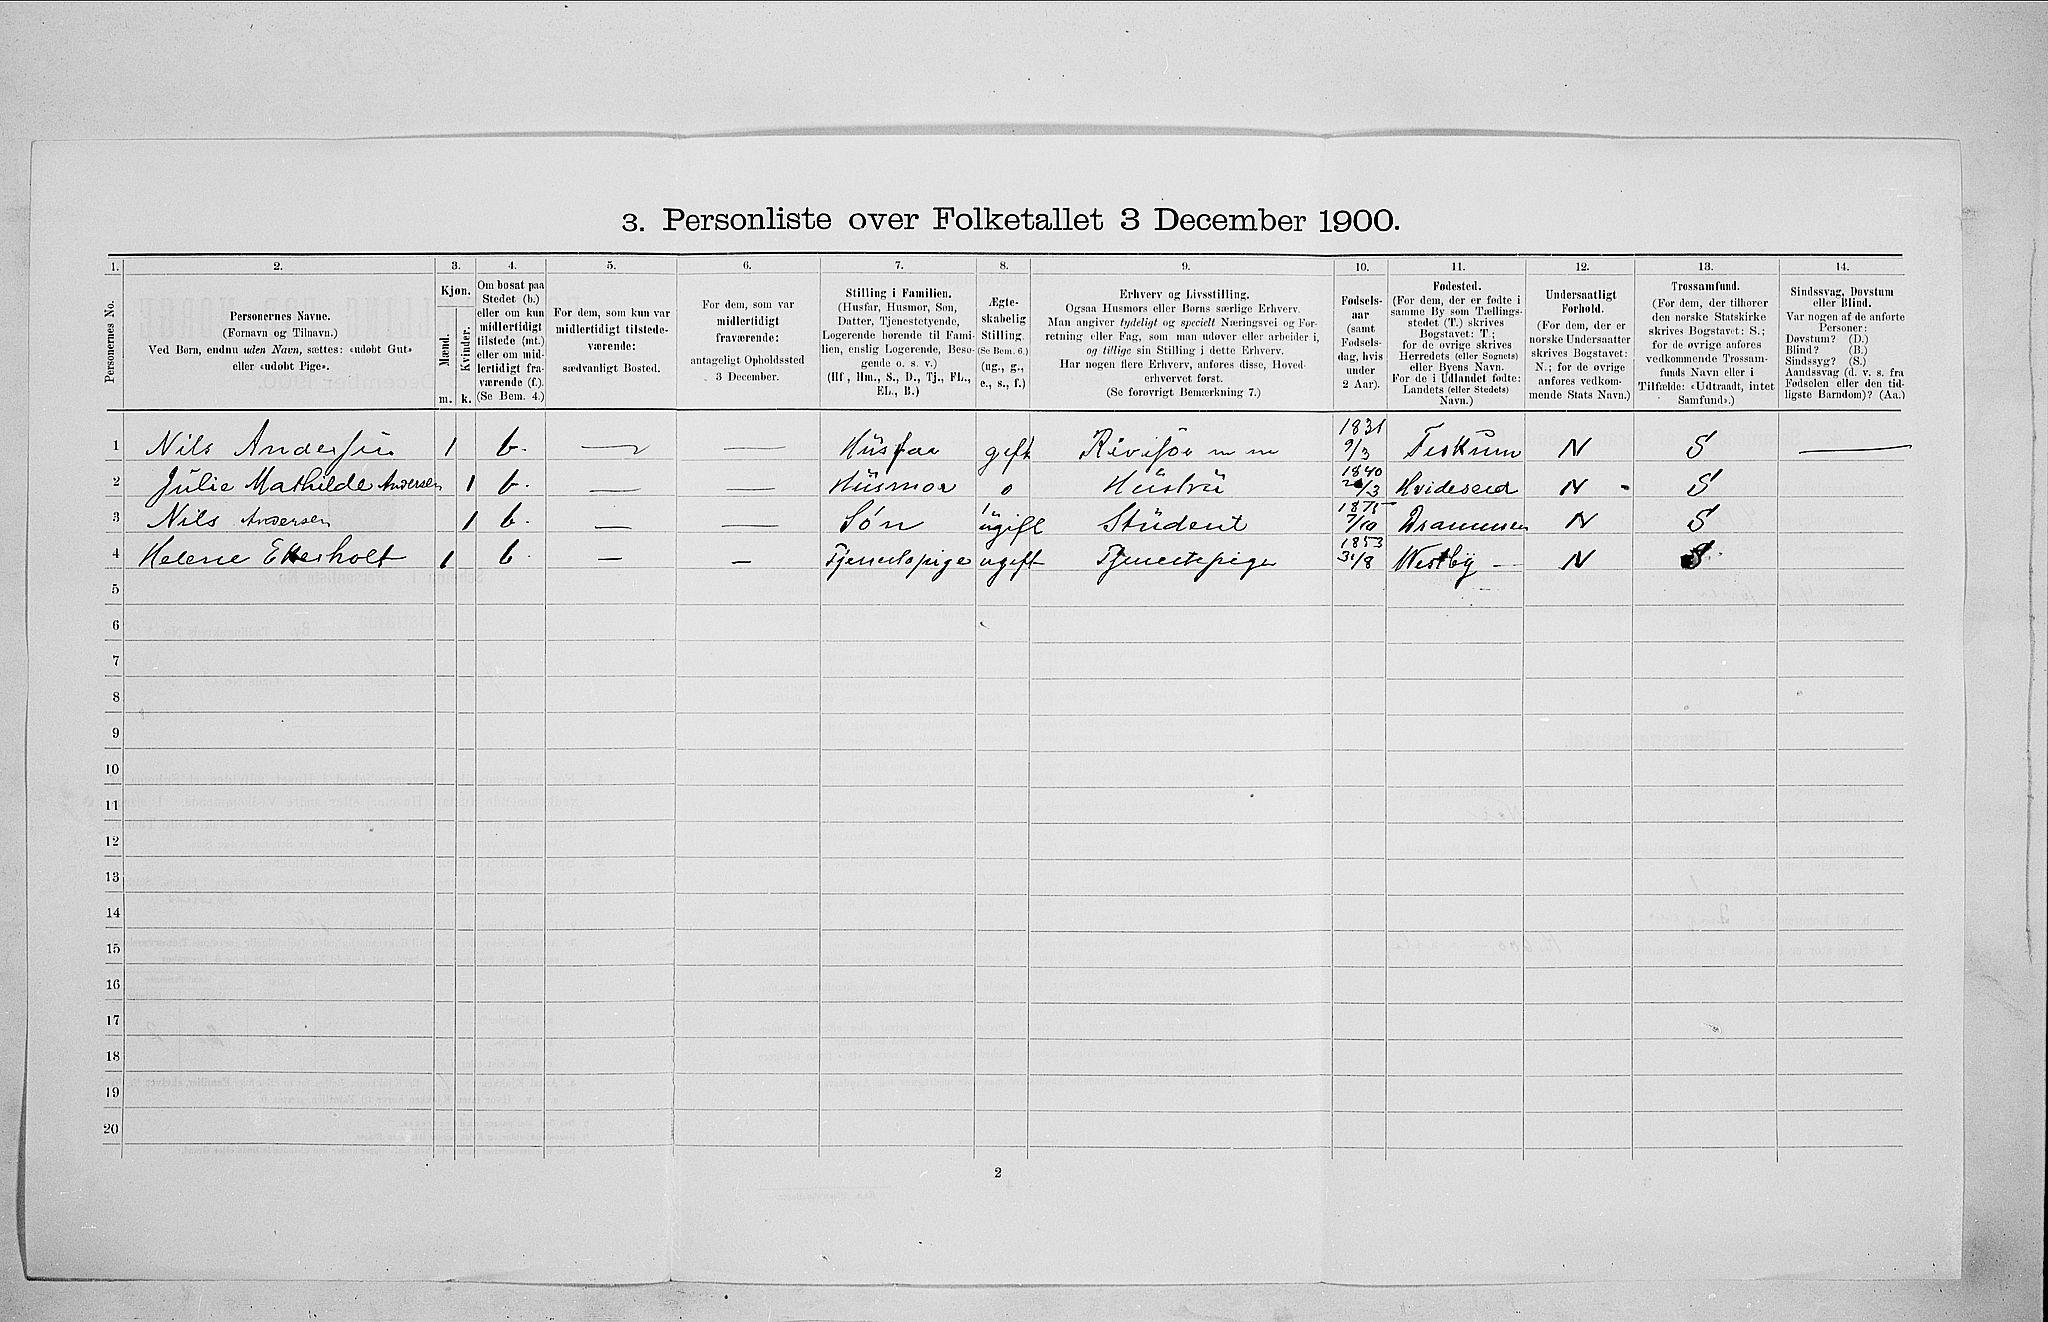 3. Personliste over Folketallet 3 December 1900.
1. 2. 3. 4. 5. 6. 7. 8. 9. 10. 11. 12. 13. 14.
Personernes No.
Personernes Navne.
(Fornavn og Tilnavn.)
Ved Børn, endnu uden Navn, sættes: «udøbt Gut»
eller «udøbt Pige».
Kjøn.
Mænd.
Kvinder.
m. k.
Om bosat paa
Stedet (b.)
eller om kun
midlertidigt
tilstede (mt.)
eller om mid-
lertidigt fra-
værende (f.)
(Se Bem. 4.)
For dem, som kun var
midlertidigt tilstede-
værende:
sædvanligt Bosted.
For dem, som var
midlertidigt
fraværende:
antageligt Opholdssted
3 December.
Stilling i Familien.
(Husfar, Husmor, Søn,
Datter, Tjenestetyende,
Logerende hørende til Fami-
lien, enslig Logerende, Besø-
gende o. s. v.)
(Hf, Hm., S., D., Tj., FL.,
EL., B.)
Ægte-
skabelig
Stilling.
(Se Bem. 6.)
(ug., g.,
e., s., f.)
Erhverv og Livsstilling.
Ogsaa Husmors eller Børns særlige Erhverv.
Man angiver tydeligt og specielt Næringsvei og For-
retning eller Fag, som man udøver eller arbeider i,
og tillige sin Stilling i dette Erhverv.
Har nogen flere Erhverv, anføres disse, Hoved-
erhvervet først.
(Se forøvrigt Bemærkning 7.)
Fødsels-
aar
(samt
Fødsels-
dag, hvis
under
2 Aar).
Fødested.
(For dem, der er fødte i
samme By som Tællings-
stedet (T.) skrives
Bogstavet: T;
for de øvrige skrives
Herredets (eller Sognets)
eller Byens Navn.
For de i Udlandet fødte:
Landets (eller Stedets)
Navn.)
Undersaatligt
Forhold.
(For dem, der er
norske Undersaatter
skrives Bogstavet:
N.; for de øvrige
anføres vedkom-
mende Stats Navn.)
Trossamfund.
(For dem, der tilhører
den norske Statskirke
skrives Bogstavet: S.;
for de øvrige anføres
vedkommende Trossam-
funds Navn eller i
Tilfælde: «Udtraadt, intet
Samfund».)
Sindssvag, Døvstum
eller Blind.
Var nogen af de anførte
Personer:
Døvstum? (D.)
Blind? (B.)
Sindssyg? (S.)
Aandssvag (d. v. s. fra
Fødselen eller den tid-
ligste Barndom)? (Aa.)
1 Nils Andersen 1 b. — — Husfar gift 1831 9/3 N S —
2 Julie Mathilde Andersen 1 b. — — Husmor Hustru 1840 /3 Hvideseid N - S
3 Nils Andersen 1 b. — — Søn ugift Student 7/10 Drammen N S
4 Helene Ekersholt 1 b. — — Tjenestepige ugift Tjenestepige 1853 31/8 Westby — N S
5
6
7
8
9
10
11
12
13
14
15
16
17
18
19
20
2